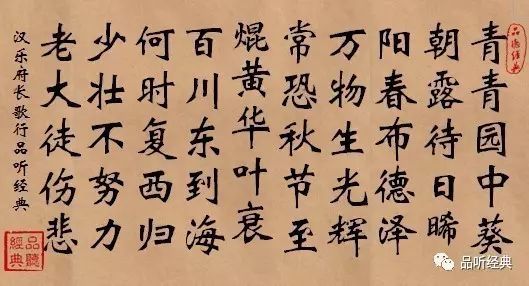 青青园中葵
朝露待日晞
阳春布德泽
万物生光辉
常恐秋节至
焜黄华叶衰
百川东到海
何时复西归
少壮不努力
老大徒伤悲
汉乐府长歌行品听经典
品聽經典
品听经典